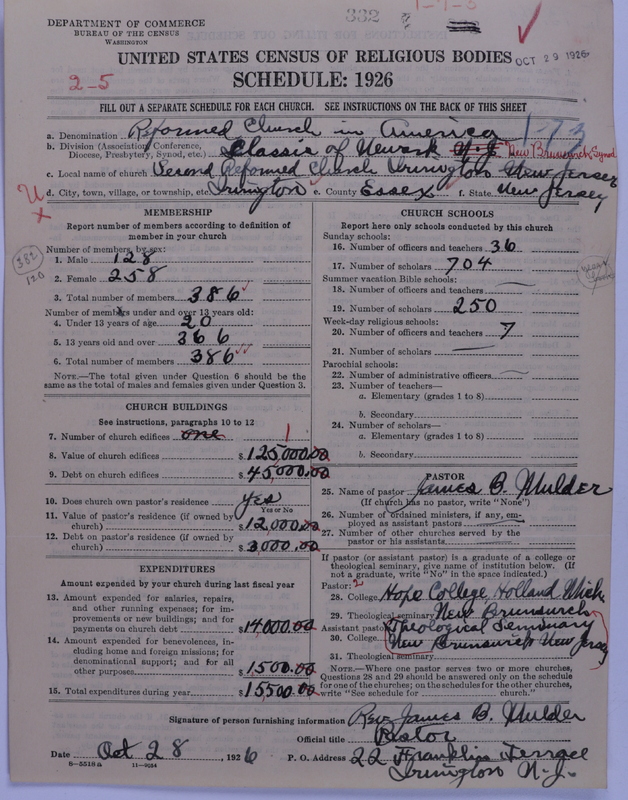 DEPARTMENT OF COMMERCE
BUREAU OF THE CENSUS
WASHINGTON
332
1-7-3
UNITED STATES CENSUS OF RELIGIOUS BODIES
OCT 29 1926
SCHEDULE: 1926
2-5
FILL OUT A SEPARATE SCHEDULE FOR EACH CHURCH. SEE INSTRUCTIONS ON THE BACK OF THIS SHEET
a. Denomination Reformed Church in America 1-7-3
b. Division (Association, Conference, Diocese, Presbytery, Synod, etc.) Classis of Newark N.J. New Brunswick Synod
c. Local name of church Second Reformed Church Irvington New Jersey
d. City, town, village, or township, etc. Irvington e. County Essex f. State New Jersey
U
x
MEMBERSHIP
Report number of members according to definition of member in your church
Number of members by sex:
1. Male 128
2. Female 258
3. Total number of members 386
Number of members under and over 13 years old:
4. Under 13 years of age 20
5. 13 years old and over 366
6. Total number of members 386
NOTE.—The total given under Question 6 should be the same as the total of males and females given under Question 3.
382
120
CHURCH BUILDINGS
See instructions, paragraphs 10 to 12
7. Number of church edifices one 1
8. Value of church edifices $125,000.00
9. Debt on church edifices $45,000.00
10. Does church own pastor's residence yes
Yes or No
11. Value of pastor's residence (if owned by church) $12,000.00
12. Debt on pastor's residence (if owned by church) $3000.00
EXPENDITURES
Amount expended by your church during last fiscal year
13. Amount expended for salaries, repairs, and other running expenses; for improvements or new buildings; and for payments on church debt $14000.00
14. Amount expended for benevolences, including home and foreign missions; for denominational support; and for all other purposes $1,500.00
15. Total expenditures during year $15,500.00
CHURCH SCHOOLS
Report here only schools conducted by this church
Sunday schools:
16. Number of officers and teachers 36
17. Number of scholars 704
Summer vacation Bible schools:
18. Number of officers and teachers
19. Number of scholars 250
Week-day religious schools:
20. Number of officers and teachers 7
21. Number of scholars
Parochial schools:
22. Number of administrative officers
23. Number of teachers—
a. Elementary (grades 1 to 8)
b. Secondary
24. Number of scholars—
a. Elementary (grades 1 to 8)
b. Secondary
PASTOR
25. Name of pastor James B. Mulder
(If church has no pastor, write "None")
26. Number of ordained ministers, if any, employed as assistant pastors
27. Number of other churches served by the pastor or his assistants
If pastor (or assistant pastor) is a graduate of a college or theological seminary, give name of institution below. (If not a graduate, write "No" in the space indicated.)
Pastor: 2
28. College Hope College, Holland, Mich
29. Theological seminary New Brunswick
Assistant pastor: Theological Seminary
30. College New Brunswick New Jersey
31. Theological seminary
NOTE.—Where one pastor serves two or more churches, Questions 28 and 29 should be answered only on the schedule for one of the churches; on the schedules for the other churches, write "See schedule for church."
Signature of person furnishing information Rev. James B. Mulder
Official title Pastor
Date Oct 28, 1926 P. O. Address 22 Franklin Terrace
8-5518a 11-9034 Irvington N.J.